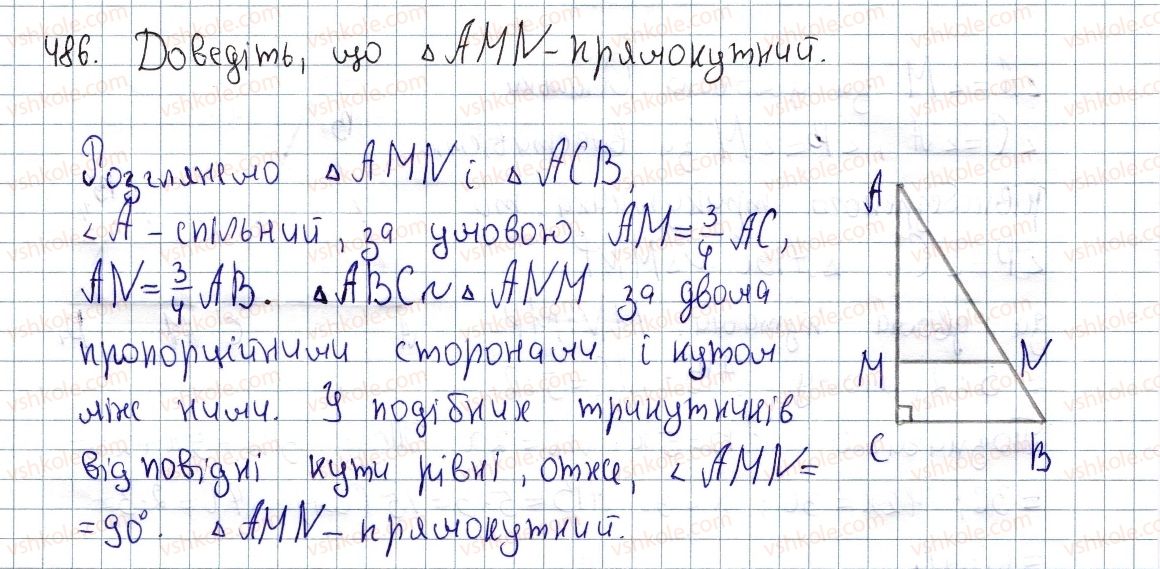 486. Доведіть, що △ AMN - прямокутний.
Розглянемо △ AMN і △ ACB,
∠ A - спільний, за умовою AM = 3/4 AC,
AN = 3/4 AB. △ ABC ~ △ ANM за двома
пропорційними сторонами і кутом
між ними. У подібних трикутників
відповідні кути рівні, отже, ∠ AMN =
= 90°. △ AMN - прямокутний.
A
M N
C B
vshkole.com